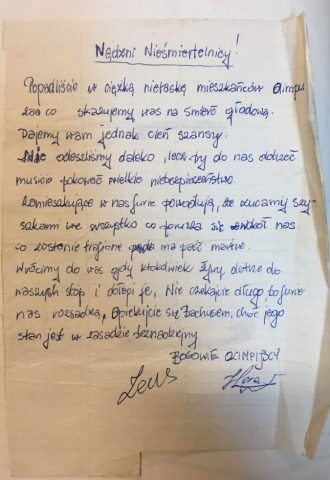 Nędzni Nieśmiertelnicy!
Popadliście w ciężką niełaskę mieszkańców Olimpu
za co skazujemy was na śmierć głodową.
Dajemy wam jednak cień szansy.
Nie odeszliśmy daleko, lecz by do nas dotrzeć
musicie pokonać wielkie niebezpieczeństwo.
Zamieszkujące w nas furie powodują, że rzucamy szy-
szkami we wszystko co porusza się wokół nas
co zostanie trafione pada martwe.
Wyślijmy do was gdy ktokolwiek żywy, dotrze do
naszych stóp i dotknie je. Nie czekajcie długo, bo furie
nas rozsadzą. Opiekujcie się Bachusem, choć jego
stan jest w zasadzie beznadziejny
BOGOWIE OLIMPIJSCY
Zeus Hera